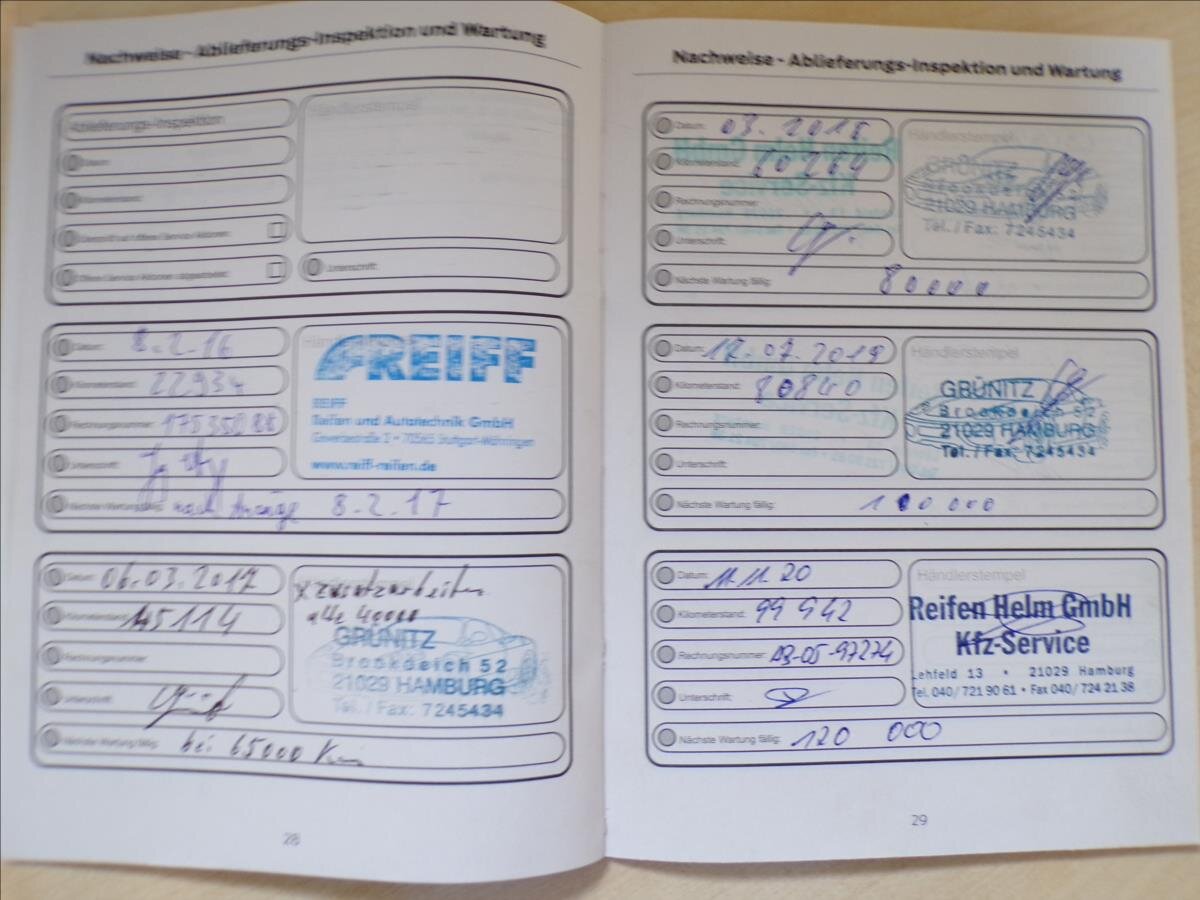 Nachweise - Ablieferungs-Inspektion und Wartung
Ablieferungs-Inspektion
Händlerstempel
Datum:
Kilometerstand:
Unterschrift:
Datum: 8.2.16
Kilometerstand: 22934
Rechnungsnummer:
Unterschrift:
Nächste Wartung fällig: 8.2.17
REIFF
REIFF
Reifen und Autotechnik GmbH
www.reiff-reifen.de
Datum: 06.03.2017
Kilometerstand: 45114
Rechnungsnummer:
Unterschrift:
Nächste Wartung fällig: bei 65000 Km
x Zusatzarbeiten
alle 40000
GRÜNITZ
Brookdeich 52
21029 HAMBURG
Tel. / Fax: 7245434
28
Nachweise - Ablieferungs-Inspektion und Wartung
Datum: 03.2018
Kilometerstand: 60264
Rechnungsnummer:
Unterschrift:
Nächste Wartung fällig: 80000
Händlerstempel
GRÜNITZ
Brookdeich
21029 HAMBURG
Tel. / Fax: 7245434
Datum: 17.07.2019
Kilometerstand: 80840
Rechnungsnummer:
Unterschrift:
Nächste Wartung fällig: 100000
Händlerstempel
GRÜNITZ
Brookdeich 52
21029 HAMBURG
Tel. / Fax: 7245434
Datum: 11.11.20
Kilometerstand: 99 942
Rechnungsnummer: AB-05-97274
Unterschrift:
Nächste Wartung fällig: 120 000
Händlerstempel
Reifen Helm GmbH
Kfz-Service
Lehfeld 13 • 21029 Hamburg
Tel. 040/ 721 90 61 • Fax 040/ 724 21 38
29